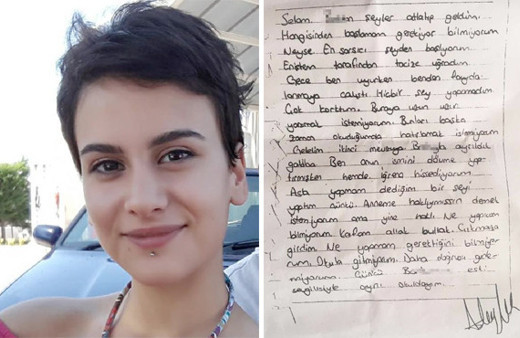 Selam. B...n şeyler atlatıp geldim.
Hangisinden başlamam gerekiyor bilmiyorum
Neyse En sarsıcı şeyden başlıyorum.
Eniştem tarafından tacize uğradım
Gece ben uyurken benden fayda-
lanmaya çalıştı. Hiçbir şey yapamadım
Çok korktum. Buraya uzun uzun
yazmak istemiyorum. Bunları başka
zaman okuduğumda hatırlamak istemiyorum
Gelelim ikinci mevzuya B...yla ayrıldık
galiba Ben onun ismini dövme yap-
tırmıştım hemde. İğrenç hissediyorum
Asla yapmam dediğim bir şeyi
yaptım çünkü. Anneme haklıymışsın demek
istemiyorum ama yine haklı. Ne yapıcam
bilmiyorum. Kafam allak bullak. Çıkmaza
girdim. Ne yapmam gerektiğini bilmiyo-
rum. Okula gitmiyorum. Daha doğrusu gide-
miyorum. Çünkü B... eski
sevgilisiyle aynı okuldayım.